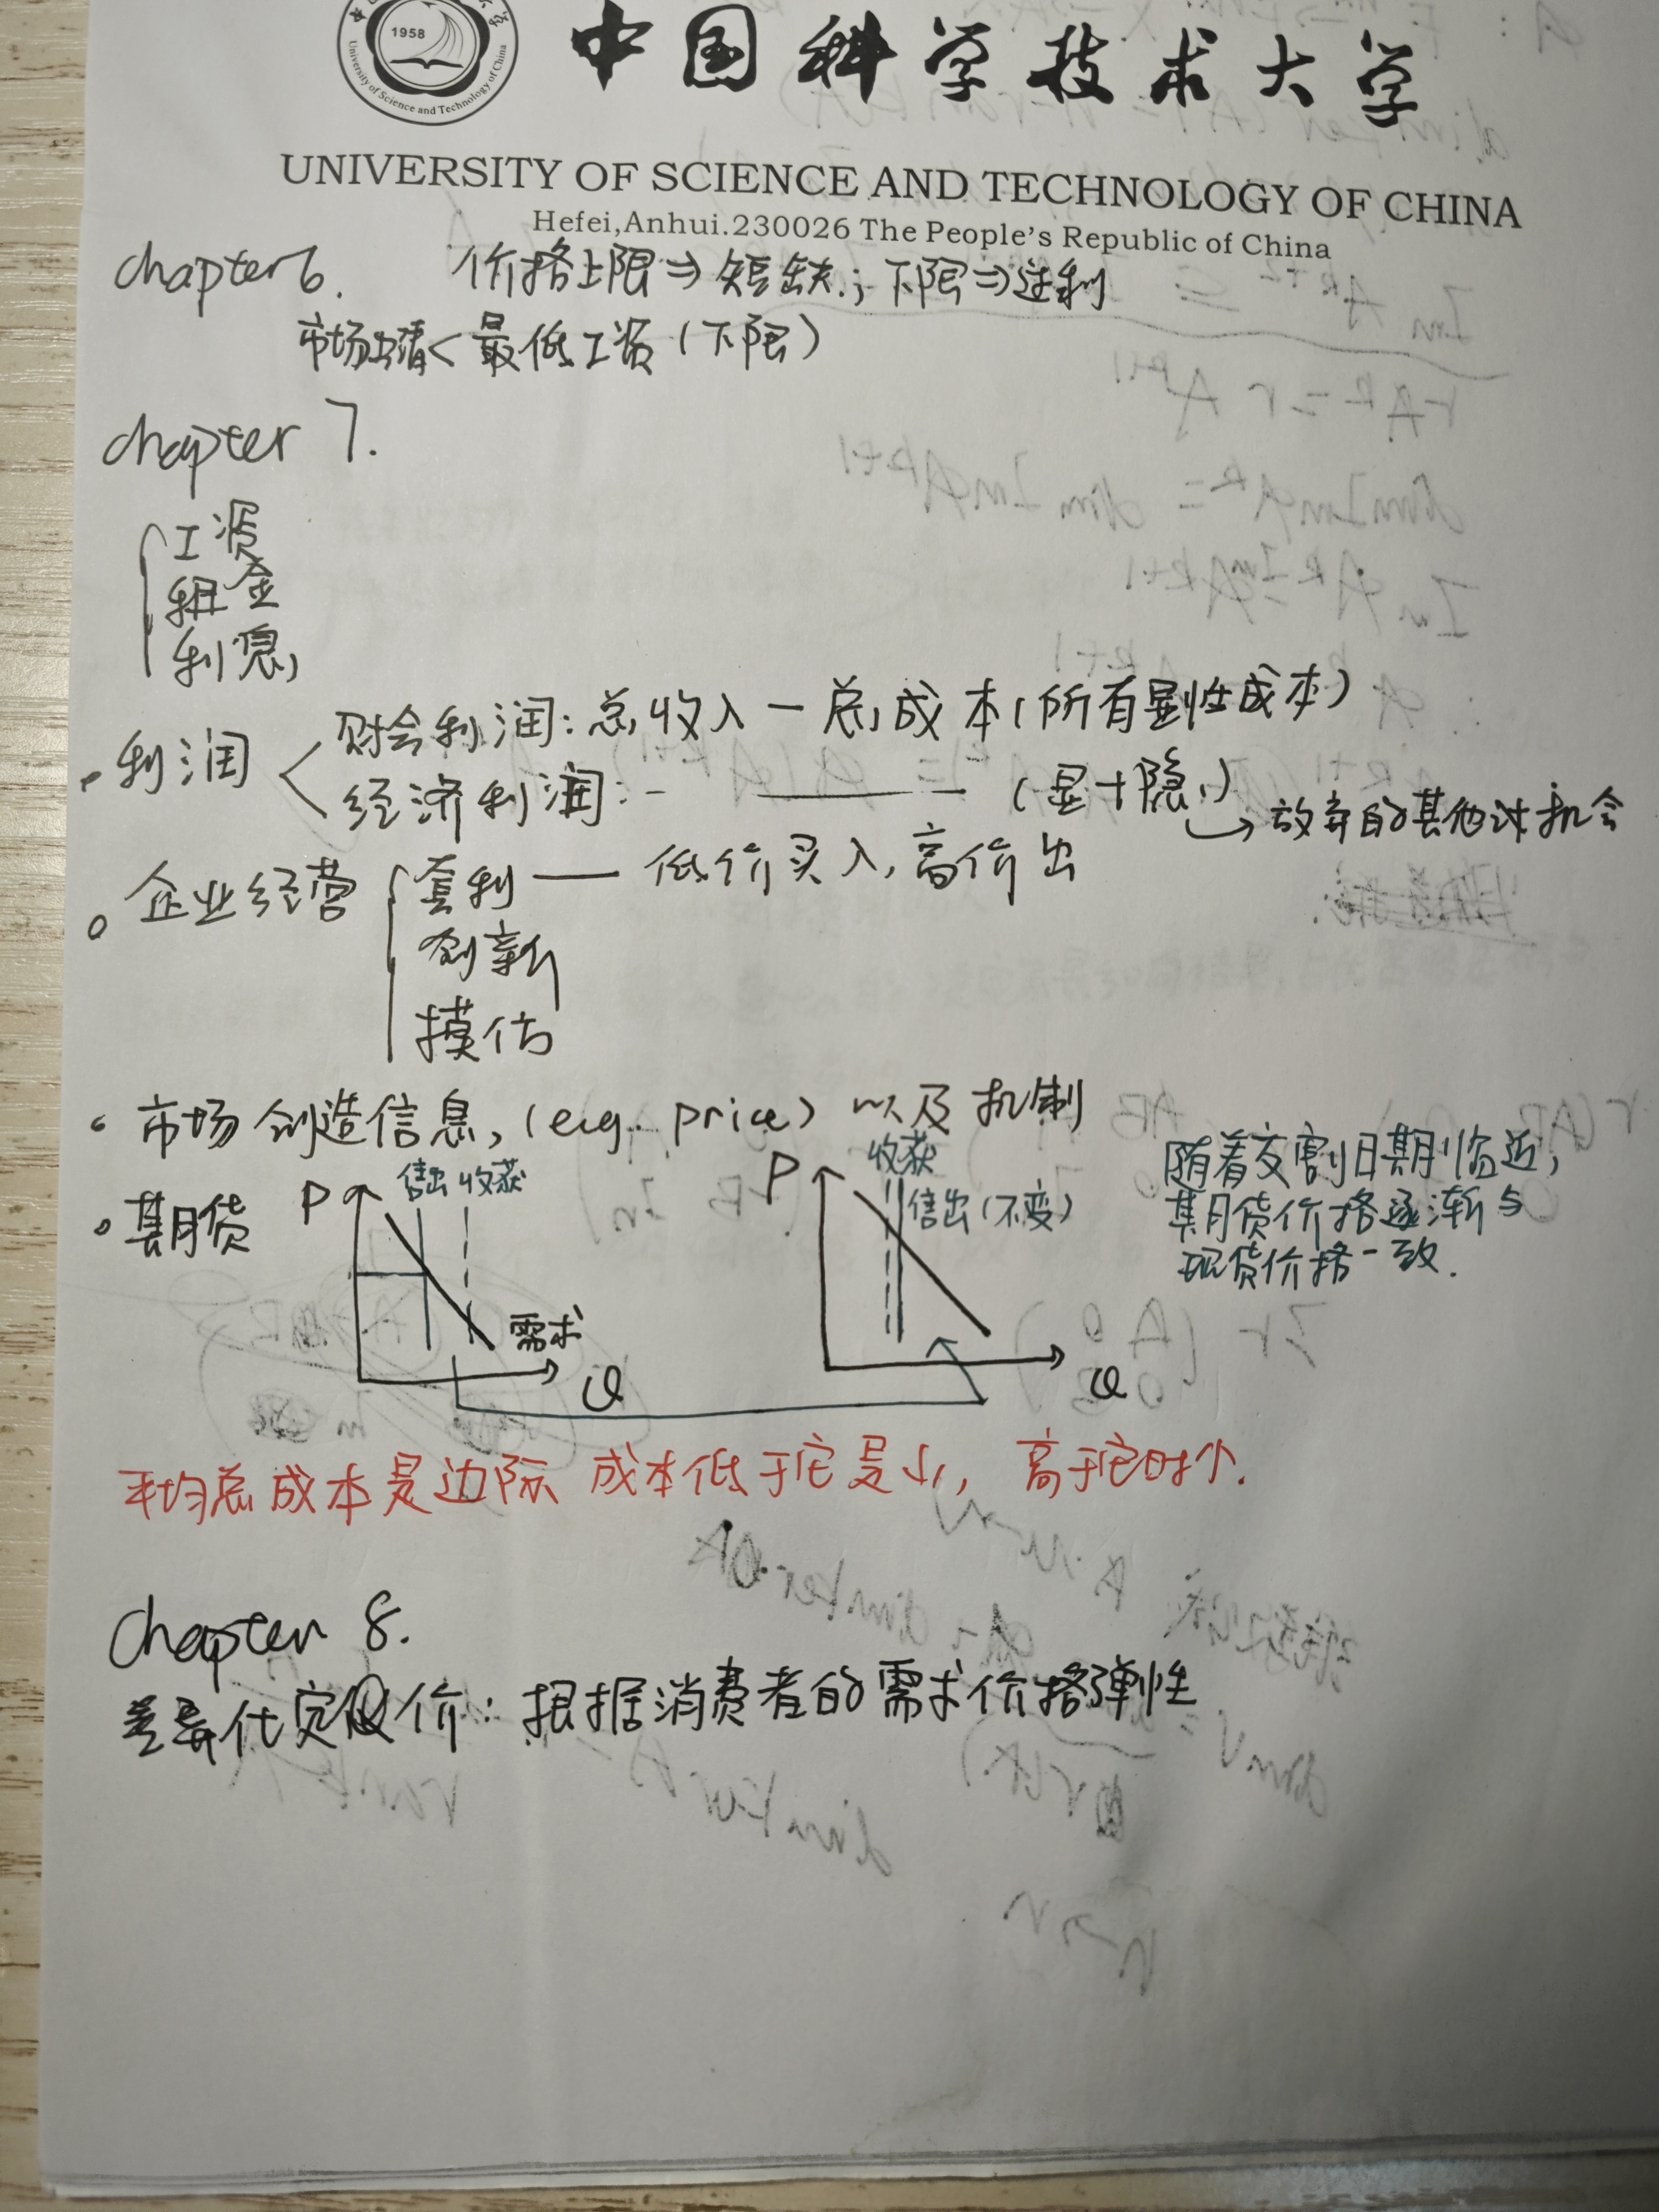 1958
University of Science and Technology of China
中国科学技术大学
UNIVERSITY OF SCIENCE AND TECHNOLOGY OF CHINA
Hefei,Anhui.230026 The People's Republic of China
chapter 6. 价格上限⇒短缺；下限⇒
市场出清< 最低工资（下限）
chapter 7.
工资
租金
利息
利润
财会利润：总收入－总成本（所有显性成本）
经济利润：－ —— （显＋隐）
→放弃的其他机会
企业经营
套利 —— 低价买入，高价出
创新
模仿
市场创造信息，(e.g. price) 以及机制
期货
P 售出 收获
需求
Q
P 收获
售出（不变）
Q
随着交割日期临近，
期货价格逐渐与
现货价格一致.
平均总成本是边际 成本低于它是↓，高于它时↑.
Chapter 8.
差异化定价：根据消费者的需求价格弹性